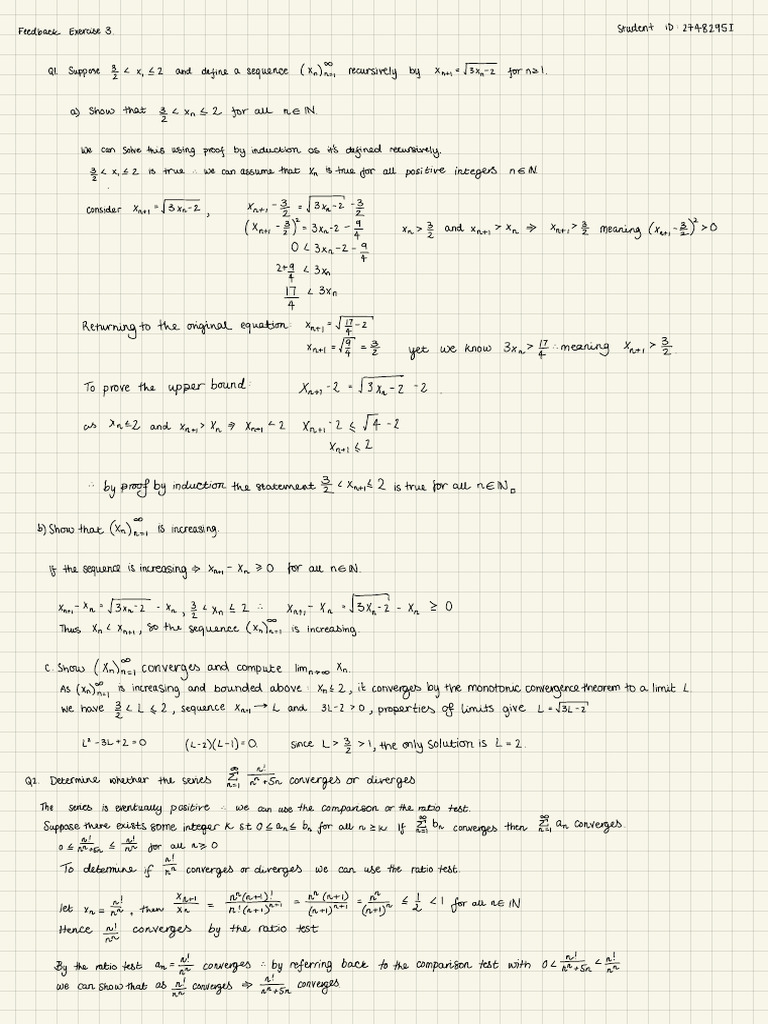 Feedback Exercise 3.
Student ID: 27482951
Q1. Suppose 3/2 < x₁ ≤ 2 and define a sequence (xₙ)ₙ₌₁^∞ recursively by xₙ₊₁ = √(3xₙ-2) for n≥1.
a) Show that 3/2 < xₙ ≤ 2 for all n∈ℕ.
We can solve this using proof by induction as it's defined recursively.
3/2 < x₁ ≤ 2 is true ∴ we can assume that xₙ is true for all positive integers n∈ℕ
consider xₙ₊₁ = √(3xₙ-2), xₙ₊₁ - 3/2 = √(3xₙ-2) - 3/2
(xₙ₊₁ - 3/2)² = 3xₙ-2 - 9/4 xₙ > 3/2 and xₙ₊₁ > xₙ ⇒ xₙ₊₁ > 3/2 meaning (xₙ₊₁ - 3/2)² > 0
0 < 3xₙ - 2 - 9/4
2+9/4 < 3xₙ
17/4 < 3xₙ
Returning to the original equation: xₙ₊₁ = √(17/4 - 2)
xₙ₊₁ = √(9/4) = 3/2 yet we know 3xₙ > 17/4 ∴ meaning xₙ₊₁ > 3/2.
To prove the upper bound: xₙ₊₁ - 2 = √(3xₙ-2) - 2
as xₙ ≤ 2 and xₙ₊₁ > xₙ ⇒ xₙ₊₁ < 2 xₙ₊₁ - 2 ≤ √4 - 2
xₙ₊₁ ≤ 2
∴ by proof by induction the statement 3/2 < xₙ₊₁ ≤ 2 is true for all n∈ℕ □
b) Show that (xₙ)ₙ₌₁^∞ is increasing.
If the sequence is increasing ⇒ xₙ₊₁ - xₙ ≥ 0 for all n∈ℕ.
xₙ₊₁ - xₙ = √(3xₙ-2) - xₙ, 3/2 < xₙ ≤ 2 ∴ xₙ₊₁ - xₙ = √(3xₙ-2) - xₙ ≥ 0
Thus xₙ < xₙ₊₁, so the sequence (xₙ)ₙ₌₁^∞ is increasing.
c. Show (xₙ)ₙ₌₁^∞ converges and compute limₙ→∞ xₙ.
As (xₙ)ₙ₌₁^∞ is increasing and bounded above: xₙ ≤ 2, it converges by the monotonic convergence theorem to a limit L.
We have 3/2 < L ≤ 2, sequence xₙ₊₁ → L and 3L-2 > 0, properties of limits give L = √(3L-2)
L² - 3L + 2 = 0 (L-2)(L-1) = 0. since L > 3/2 > 1, the only solution is L = 2.
Q2. Determine whether the series ∑ₙ₌₁^∞ n!/(nⁿ+5n) converges or diverges
The series is eventually positive ∴ we can use the comparison or the ratio test.
Suppose there exists some integer K st 0 ≤ aₙ ≤ bₙ for all n ≥ K. If ∑ₙ₌₁^∞ bₙ converges then ∑ₙ₌₁^∞ aₙ converges.
0 ≤ n!/(nⁿ+5n) ≤ n!/nⁿ for all n ≥ 0
To determine if n!/nⁿ converges or diverges we can use the ratio test.
let xₙ = n!/nⁿ, then xₙ₊₁/xₙ = nⁿ(n+1)!/(n!(n+1)ⁿ⁺¹) = nⁿ(n+1)/(n+1)ⁿ⁺¹ = nⁿ/(n+1)ⁿ ≤ 1/2 < 1 for all n∈ℕ
Hence n!/nⁿ converges by the ratio test
By the ratio test aₙ = n!/nⁿ converges ∴ by referring back to the comparison test with 0 < n!/(nⁿ+5n) < n!/nⁿ
we can show that as n!/nⁿ converges ⇒ n!/(nⁿ+5n) converges